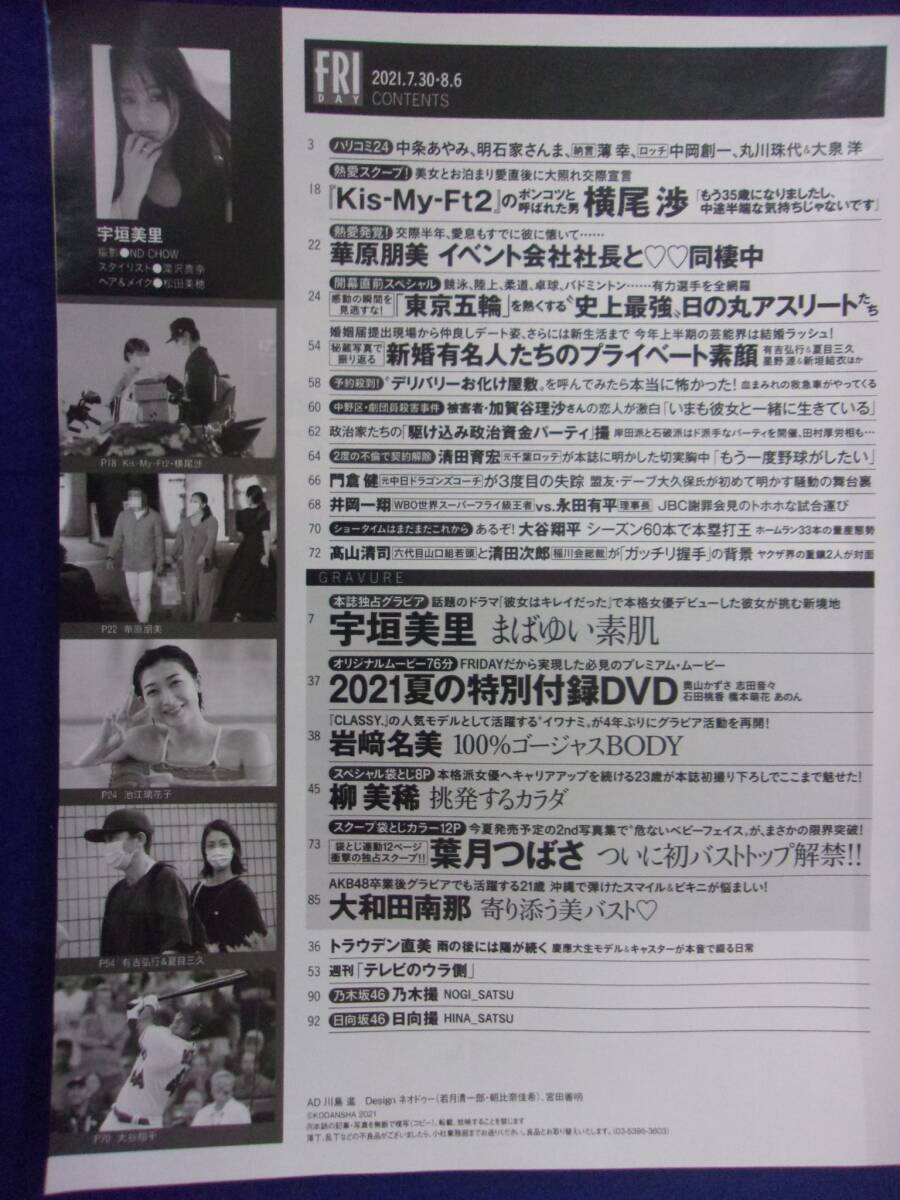 宇垣美里
撮影●ND CHOW
スタイリスト●滝沢真奈
ヘア&メイク●松田美穂
P18 Kis-My-Ft2・横尾渉
P22 華原朋美
P24 池江璃花子
P54 有吉弘行&夏目三久
P70 大谷翔平
FRIDAY
2021.7.30・8.6
CONTENTS
3 ハリコミ24 中条あやみ、明石家さんま、納言 薄 幸、ロッチ 中岡創一、丸川珠代&大泉 洋
熱愛スクープ! 美女とお泊まり愛直後に大照れ交際宣言
18 『Kis-My-Ft2』のポンコツと呼ばれた男 横尾 渉 「もう35歳になりましたし、中途半端な気持ちじゃないです」
熱愛発覚! 交際半年、愛息もすでに彼に懐いて……
22 華原朋美 イベント会社社長と♡♡同棲中
開幕直前スペシャル 競泳、陸上、柔道、卓球、バドミントン……有力選手を全網羅
24 感動の瞬間を見逃すな! 「東京五輪」を熱くする“史上最強”日の丸アスリートたち
婚姻届提出現場から仲良しデート姿、さらには新生活まで 今年上半期の芸能界は結婚ラッシュ!
54 秘蔵写真で振り返る 新婚有名人たちのプライベート素顔 有吉弘行&夏目三久 星野 源&新垣結衣ほか
58 予約殺到! “デリバリーお化け屋敷”を呼んでみたら本当に怖かった! 血まみれの救急車がやってくる
60 中野区・劇団員殺害事件 被害者・加賀谷理沙さんの恋人が激白「いまも彼女と一緒に生きている」
62 政治家たちの「駆け込み政治資金パーティ」撮 岸田派と石破派はド派手なパーティを開催、田村厚労相も…
64 2度の不倫で契約解除 清田育宏 元千葉ロッテ が本誌に明かした切実胸中 「もう一度野球がしたい」
66 門倉 健 元中日ドラゴンズコーチ が3度目の失踪 盟友・デーブ大久保氏が初めて明かす騒動の舞台裏
68 井岡一翔 WBO世界スーパーフライ級王者 vs.永田有平 理事長 JBC謝罪会見のトホホな試合運び
70 ショータイムはまだまだこれから あるぞ! 大谷翔平 シーズン60本で本塁打王 ホームラン33本の量産態勢
72 髙山清司 六代目山口組若頭 と清田次郎 稲川会総裁 が「ガッチリ握手」の背景 ヤクザ界の重鎮2人が対面
GRAVURE
本誌独占グラビア 話題のドラマ『彼女はキレイだった』で本格女優デビューした彼女が挑む新境地
7 宇垣美里 まばゆい素肌
オリジナルムービー76分 FRIDAYだから実現した必見のプレミアム・ムービー
37 2021夏の特別付録DVD 奥山かずさ 志田音々 石田桃香 橋本萌花 あのん
『CLASSY.』の人気モデルとして活躍する“イワナミ”が4年ぶりにグラビア活動を再開!
38 岩﨑名美 100%ゴージャスBODY
スペシャル袋とじ8P 本格派女優へキャリアアップを続ける23歳が本誌初撮り下ろしでここまで魅せた!
45 柳 美稀 挑発するカラダ
スクープ袋とじカラー12P 今夏発売予定の2nd写真集で“危ないベビーフェイス”が、まさかの限界突破!
73 袋とじ連動12ページ 衝撃の独占スクープ!! 葉月つばさ ついに初バストトップ解禁!!
AKB48卒業後グラビアでも活躍する21歳 沖縄で弾けたスマイル&ビキニが悩ましい!
85 大和田南那 寄り添う美バスト♡
36 トラウデン直美 雨の後には陽が続く 慶應大生モデル&キャスターが本音で綴る日常
53 週刊「テレビのウラ側」
90 乃木坂46 乃木撮 NOGI_SATSU
92 日向坂46 日向撮 HINA_SATSU
AD 川島 進 Design ネオドゥー(若月清一郎・朝比奈佳希)、宮田善明
©KODANSHA 2021
®本誌の記事・写真を無断で複写(コピー)、転載、放映することを禁じます
落丁、乱丁などの不良品がございましたら、小社業務部までお送りください。良品とお取り替えいたします。(03-5395-3603)